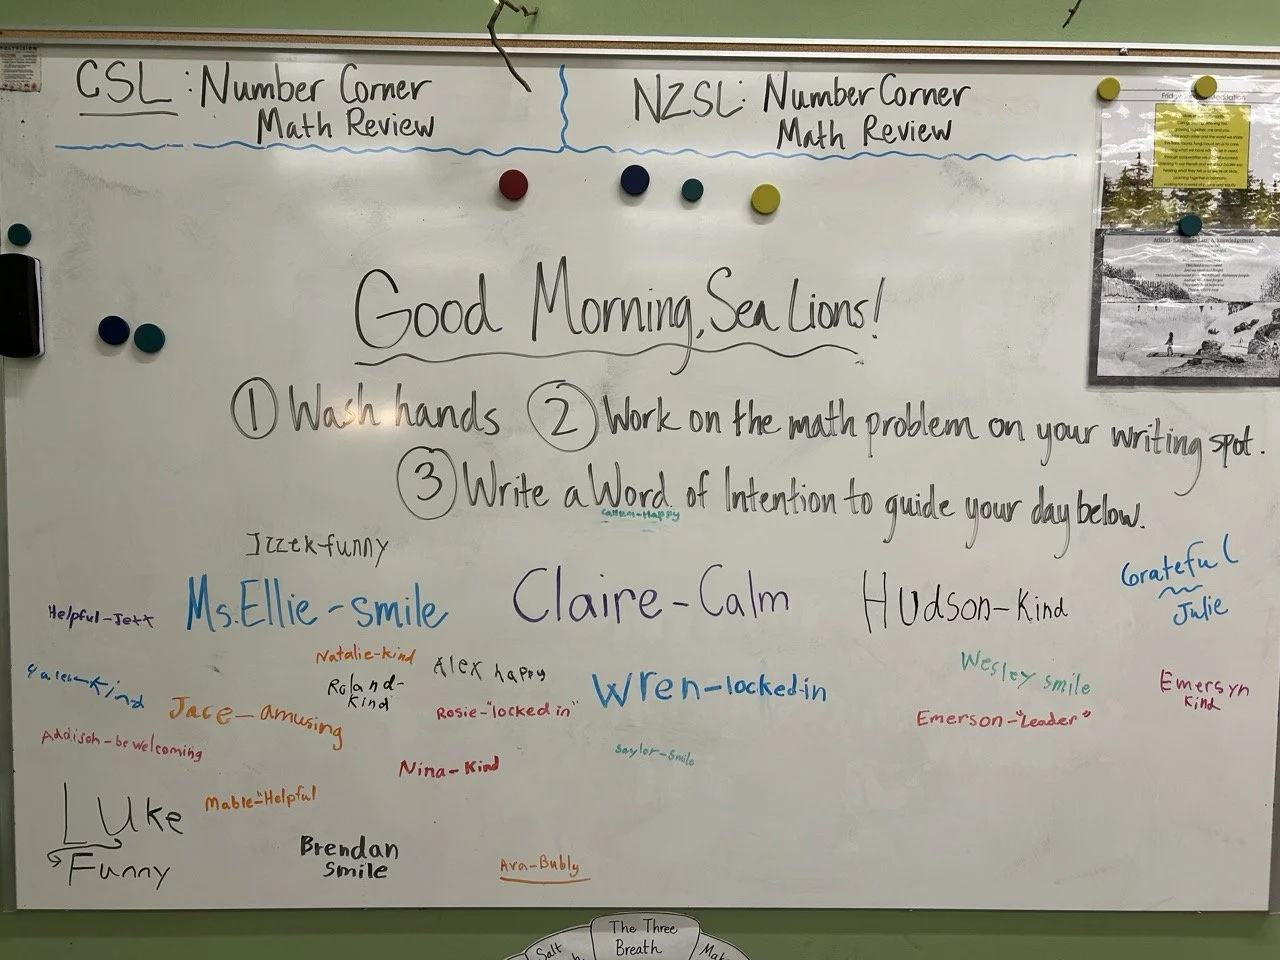 CSL: Number Corner
Math Review
NZSL: Number Corner
Math Review
Good Morning, Sea Lions!
① Wash hands ② Work on the math problem on your writing spot.
③ Write a Word of Intention to guide your day below.
Callum-Happy
Izzek-funny
Helpful-Jett
Ms. Ellie-smile
Claire-Calm
Hudson-Kind
Grateful
Julie
Kind
Natalie-kind
Roland-
Kind
Alex happy
Wren-locked in
Wesley smile
Emersyn
Kind
Jace-amusing
Rosie-"locked in"
Emerson-"Leader"
Addison-be welcoming
Nina-Kind
Saylor-Smile
Luke
Funny
Mable-"Helpful
Brendan
Smile
Ava-Bubly
The Three
Breath
Salt